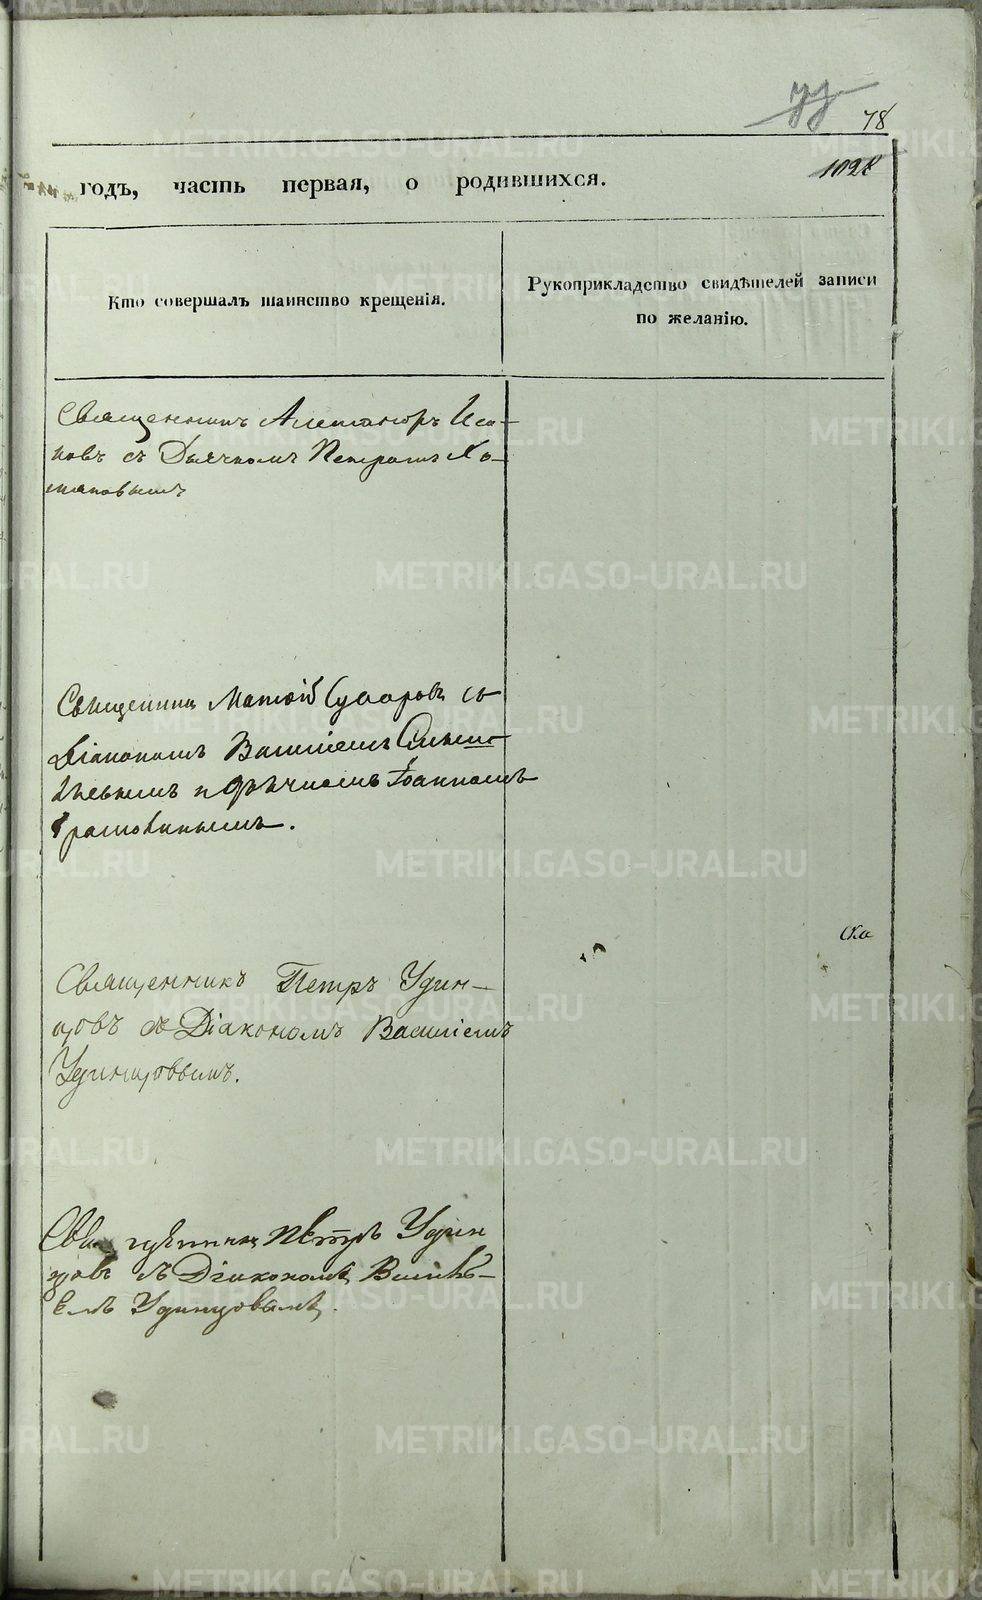 78
1028
годъ, часть первая, о родившихся.
Кто совершалъ таинство крещенія.
Рукоприкладство свидѣтелей записи
по желанію.
Священникъ Александръ Иса-
ковъ съ Дьячкомъ Петромъ Хо-
Священник Матѳій Сухаровъ съ
Діакономъ Василіемъ
и дьячкомъ Іоанномъ
Священникъ Петръ Удин-
цовъ съ Діакономъ Василіемъ
Удинцовымъ.
Петръ Удин
цовъ съ Діакономъ Василі-
емъ Удинцовымъ.
METRIKI.GASO-URAL.RU